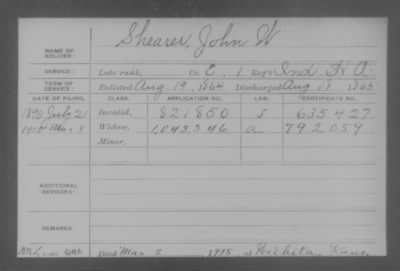 NAME OF SOLDIER: Shearer, John W
SERVICE: Late rank, Co. E, 1 Reg't Ind H A.
TERM OF SERVICE: Enlisted Aug 19, 1864 Discharged Aug 18, 1865
DATE OF FILING. CLASS. APPLICATION NO. LAW. CERTIFICATE NO.
1890 July 21 Invalid, 821850 J 635427
Mar. 8 Widow, 1,043,346 a 792059
Minor,
ADDITIONAL SERVICES:
REMARKS:
Died Mar 1915, at Wichita, Kans.